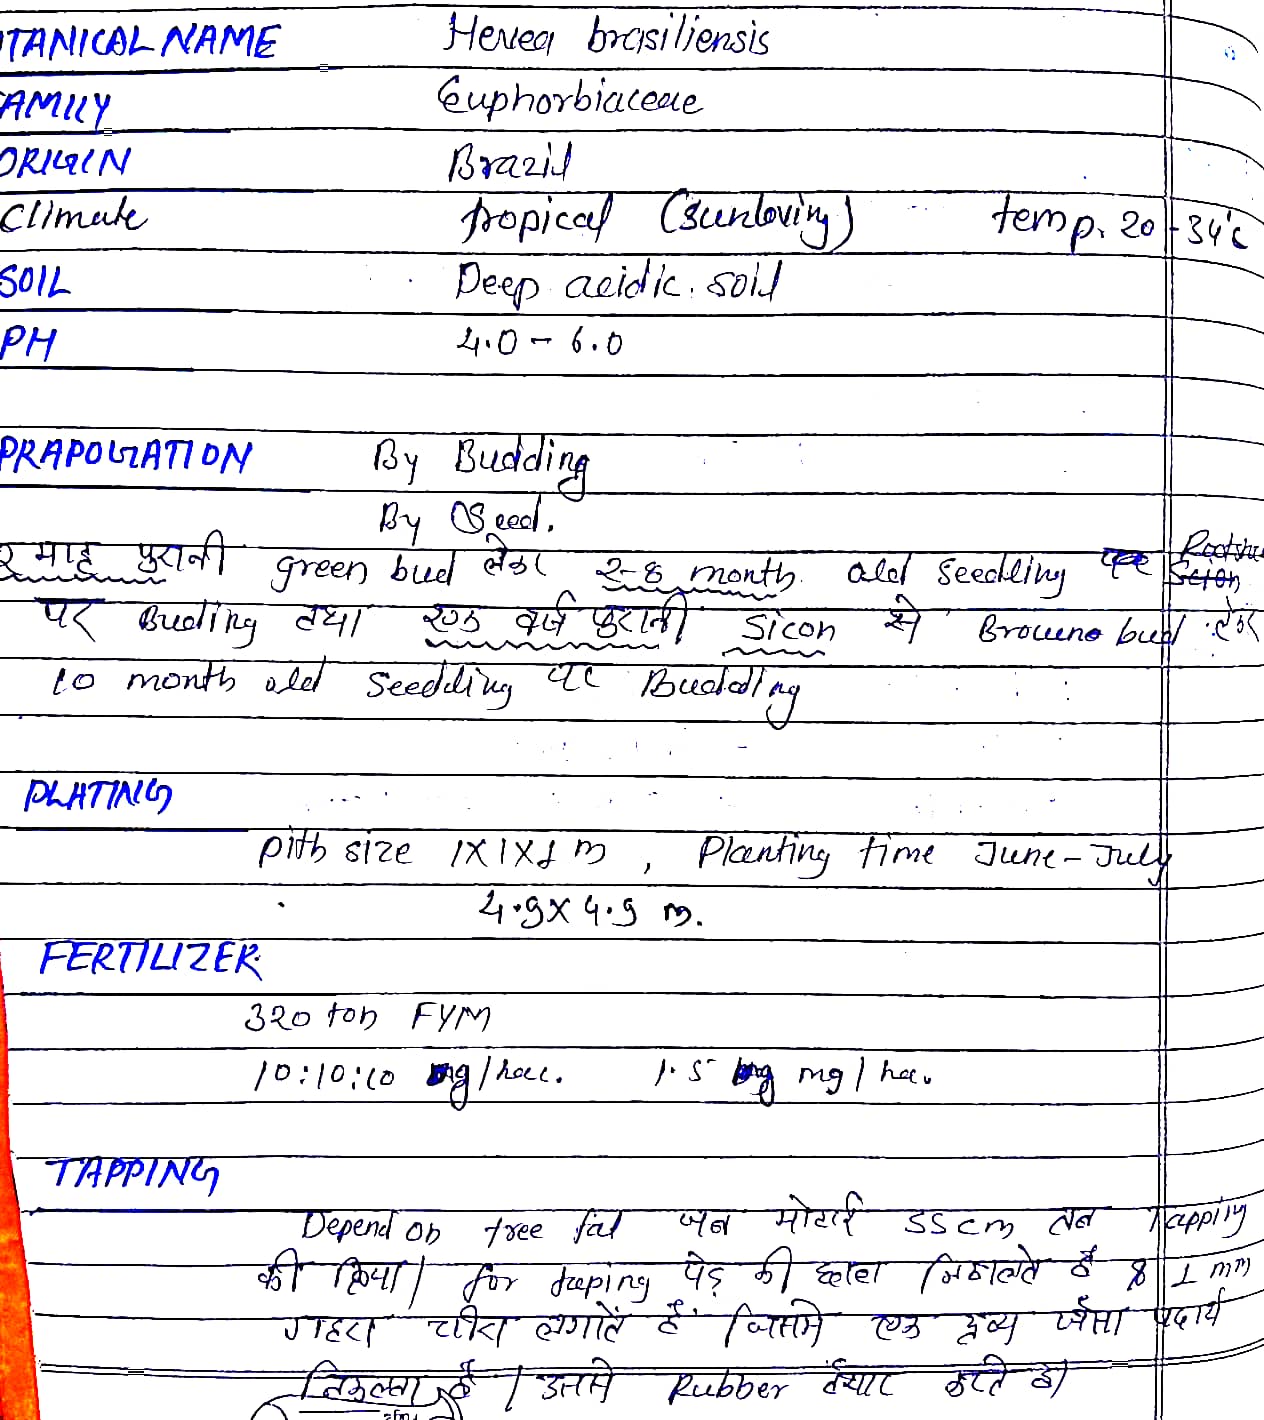 TANICAL NAME Hevea brasiliensis
AMILY Euphorbiaceae
ORIGIN Brazil
Climate tropical (sunloving) temp. 20-34°c
SOIL Deep acidic. soil
PH 4.0 - 6.0
PRAPOGATION By Budding
By Seed.
2 माह पुरानी green bud लेकर 2-8 month old seedling पर
पर Buding तथा एक वर्ष पुरानी Sicon से Browne bud लेकर
10 month old Seedding पर Budding
PLATING
pith size 1X1X1 m , Planting time June-July
4.9X4.9 m.
FERTILIZER
320 ton FYM
10:10:10 mg/hac. 1.5 mg/hac.
TAPPING
Depend on tree जब मोटाई 55cm तब Tapping
की क्रिया। for taping पेड़ की छाल निकालते है & 1 mm
गहरा चीरा लगाते है। जिसमे एक द्रव्य जैसा पदार्थ
निकलता है। उससे Rubber तैयार करते है।